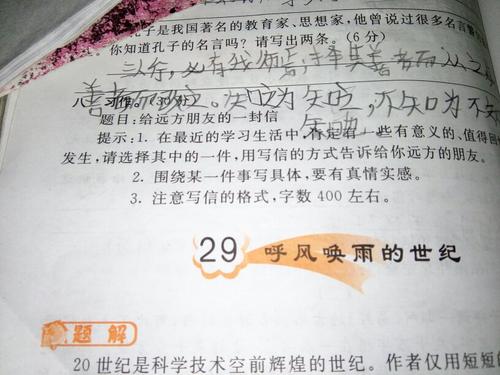 孔子是我国著名的教育家、思想家,他曾说过很多名言
你知道孔子的名言吗?请写出两条。(6分)
三人行,必有我师焉,择其善者而从之
善者而改之。知之为知之,不知为不知
八、习作。(30分)
题目:给远方朋友的一封信
提示:1. 在最近的学习生活中,不定有一些有意义的、值得
发生,请选择其中的一件,用写信的方式告诉给你远方的朋友。
2. 围绕某一件事写具体,要有真情实感。
3. 注意写信的格式,字数400左右。
29 呼风唤雨的世纪
题解
20世纪是科学技术空前辉煌的世纪。作者仅用短短